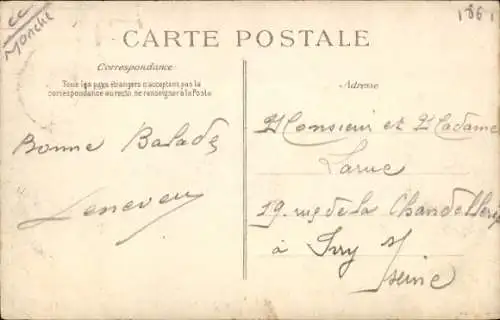 cc
Manche
1861
CARTE POSTALE
Correspondance
Tous les pays étrangers n'acceptant pas la
correspondance au recto, se renseigner à la Poste
Adresse
Bonne Balade
Leneveu
Monsieur et Madame
Larue
19. rue de la Chandellerie
à Ivry s/
seine